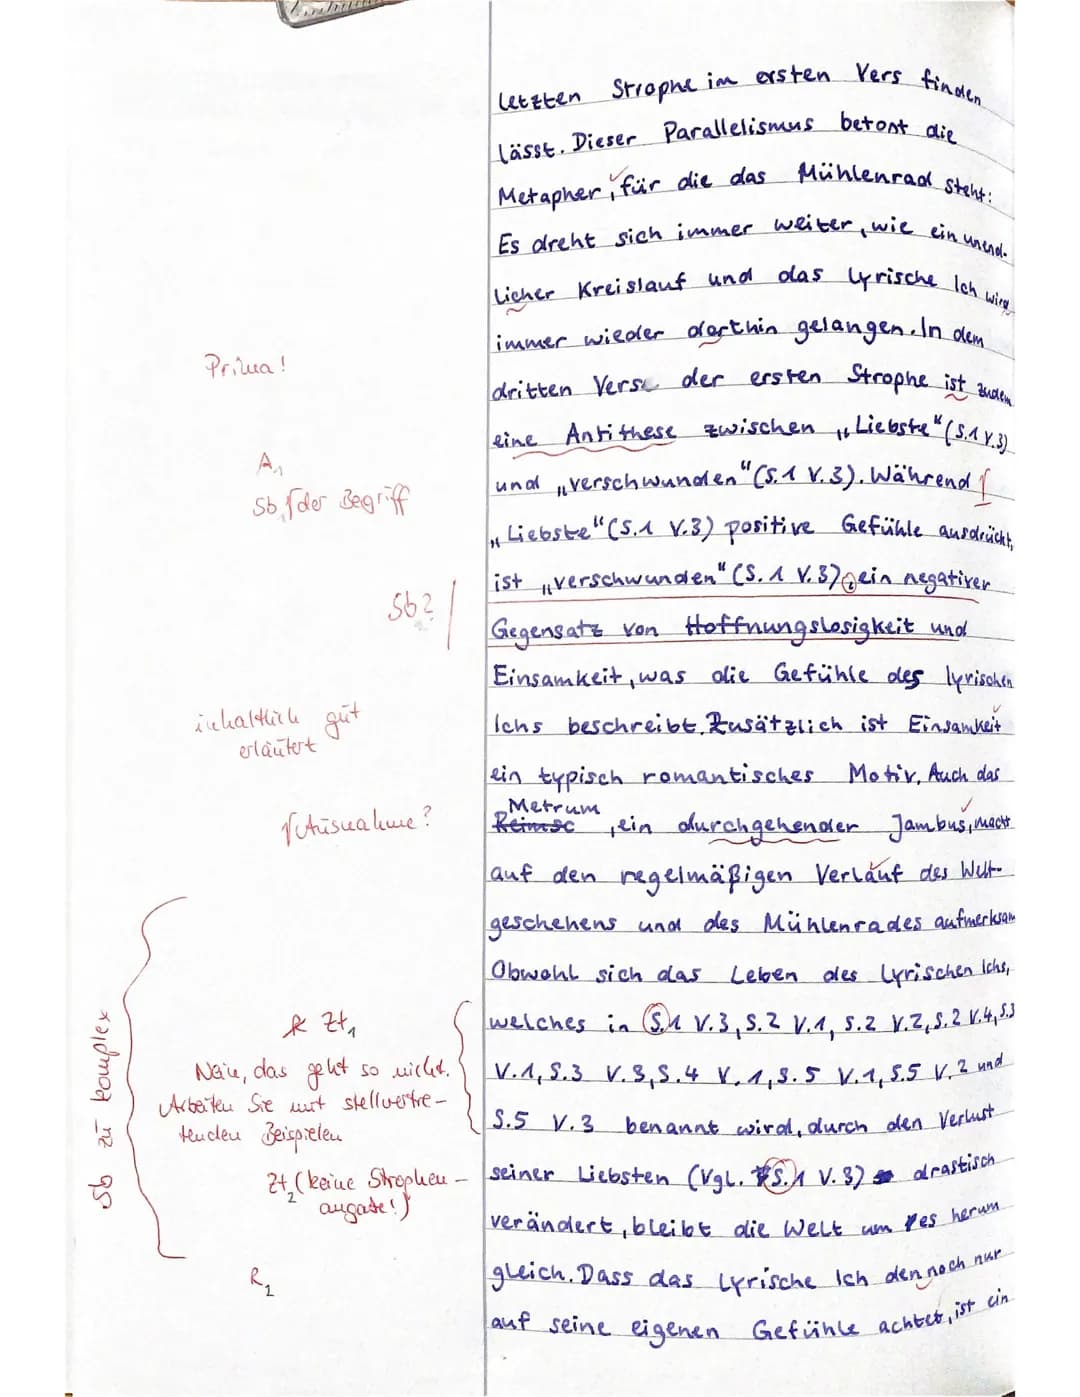 letzten Strophe im ersten Vers finden
lässt. Dieser Parallelismus betont die
Metapher, für die das Mühlenrad steht:
Es dreht sich immer weiter, wie ein unend-
licher Kreislauf und das lyrische Ich wird
immer wieder dorthin gelangen. In dem
Prima!
dritten Vers der ersten Strophe ist zudem
eine Antithese zwischen „Liebste“ (S.1 V.3)
A1
und „verschwunden“ (S.1 V.3). Während
Sb, der Begriff
„Liebste“ (S.1 V.3) positive Gefühle ausdrückt,
ist „verschwunden“ (S. 1 V. 3), ein negativer
Sb?
Gegensatz von Hoffnungslosigkeit und
Einsamkeit, was die Gefühle des lyrischen
inhaltlich gut
erläutert
Ichs beschreibt. Zusätzlich ist Einsamkeit
ein typisch romantisches Motiv. Auch das
Metrum
Reimsc , ein durchgehender Jambus, macht
Ausnahme?
auf den regelmäßigen Verlauf des Welt-
geschehens und des Mühlenrades aufmerksam
Obwohl sich das Leben des lyrischen Ichs,
Sb zu komplex
R Zt1
welches in S.1 V.3, S.2 V.1, S.2 V.2, S.2 V.4, S.3
Nein, das geht so nicht.
Arbeiten Sie mit stellvertre-
tenden Beispielen
V.1, S.3 V.3, S.4 V.1, S.5 V.1, S.5 V.2 und
S.5 V.3 benannt wird, durch den Verlust
Zt2 (keine Strophen-
angabe!)
seiner Liebsten (Vgl. S.1 V.3) drastisch
verändert, bleibt die Welt um es herum
R2
gleich. Dass das lyrische Ich dennoch nur
auf seine eigenen Gefühle achtet, ist ein